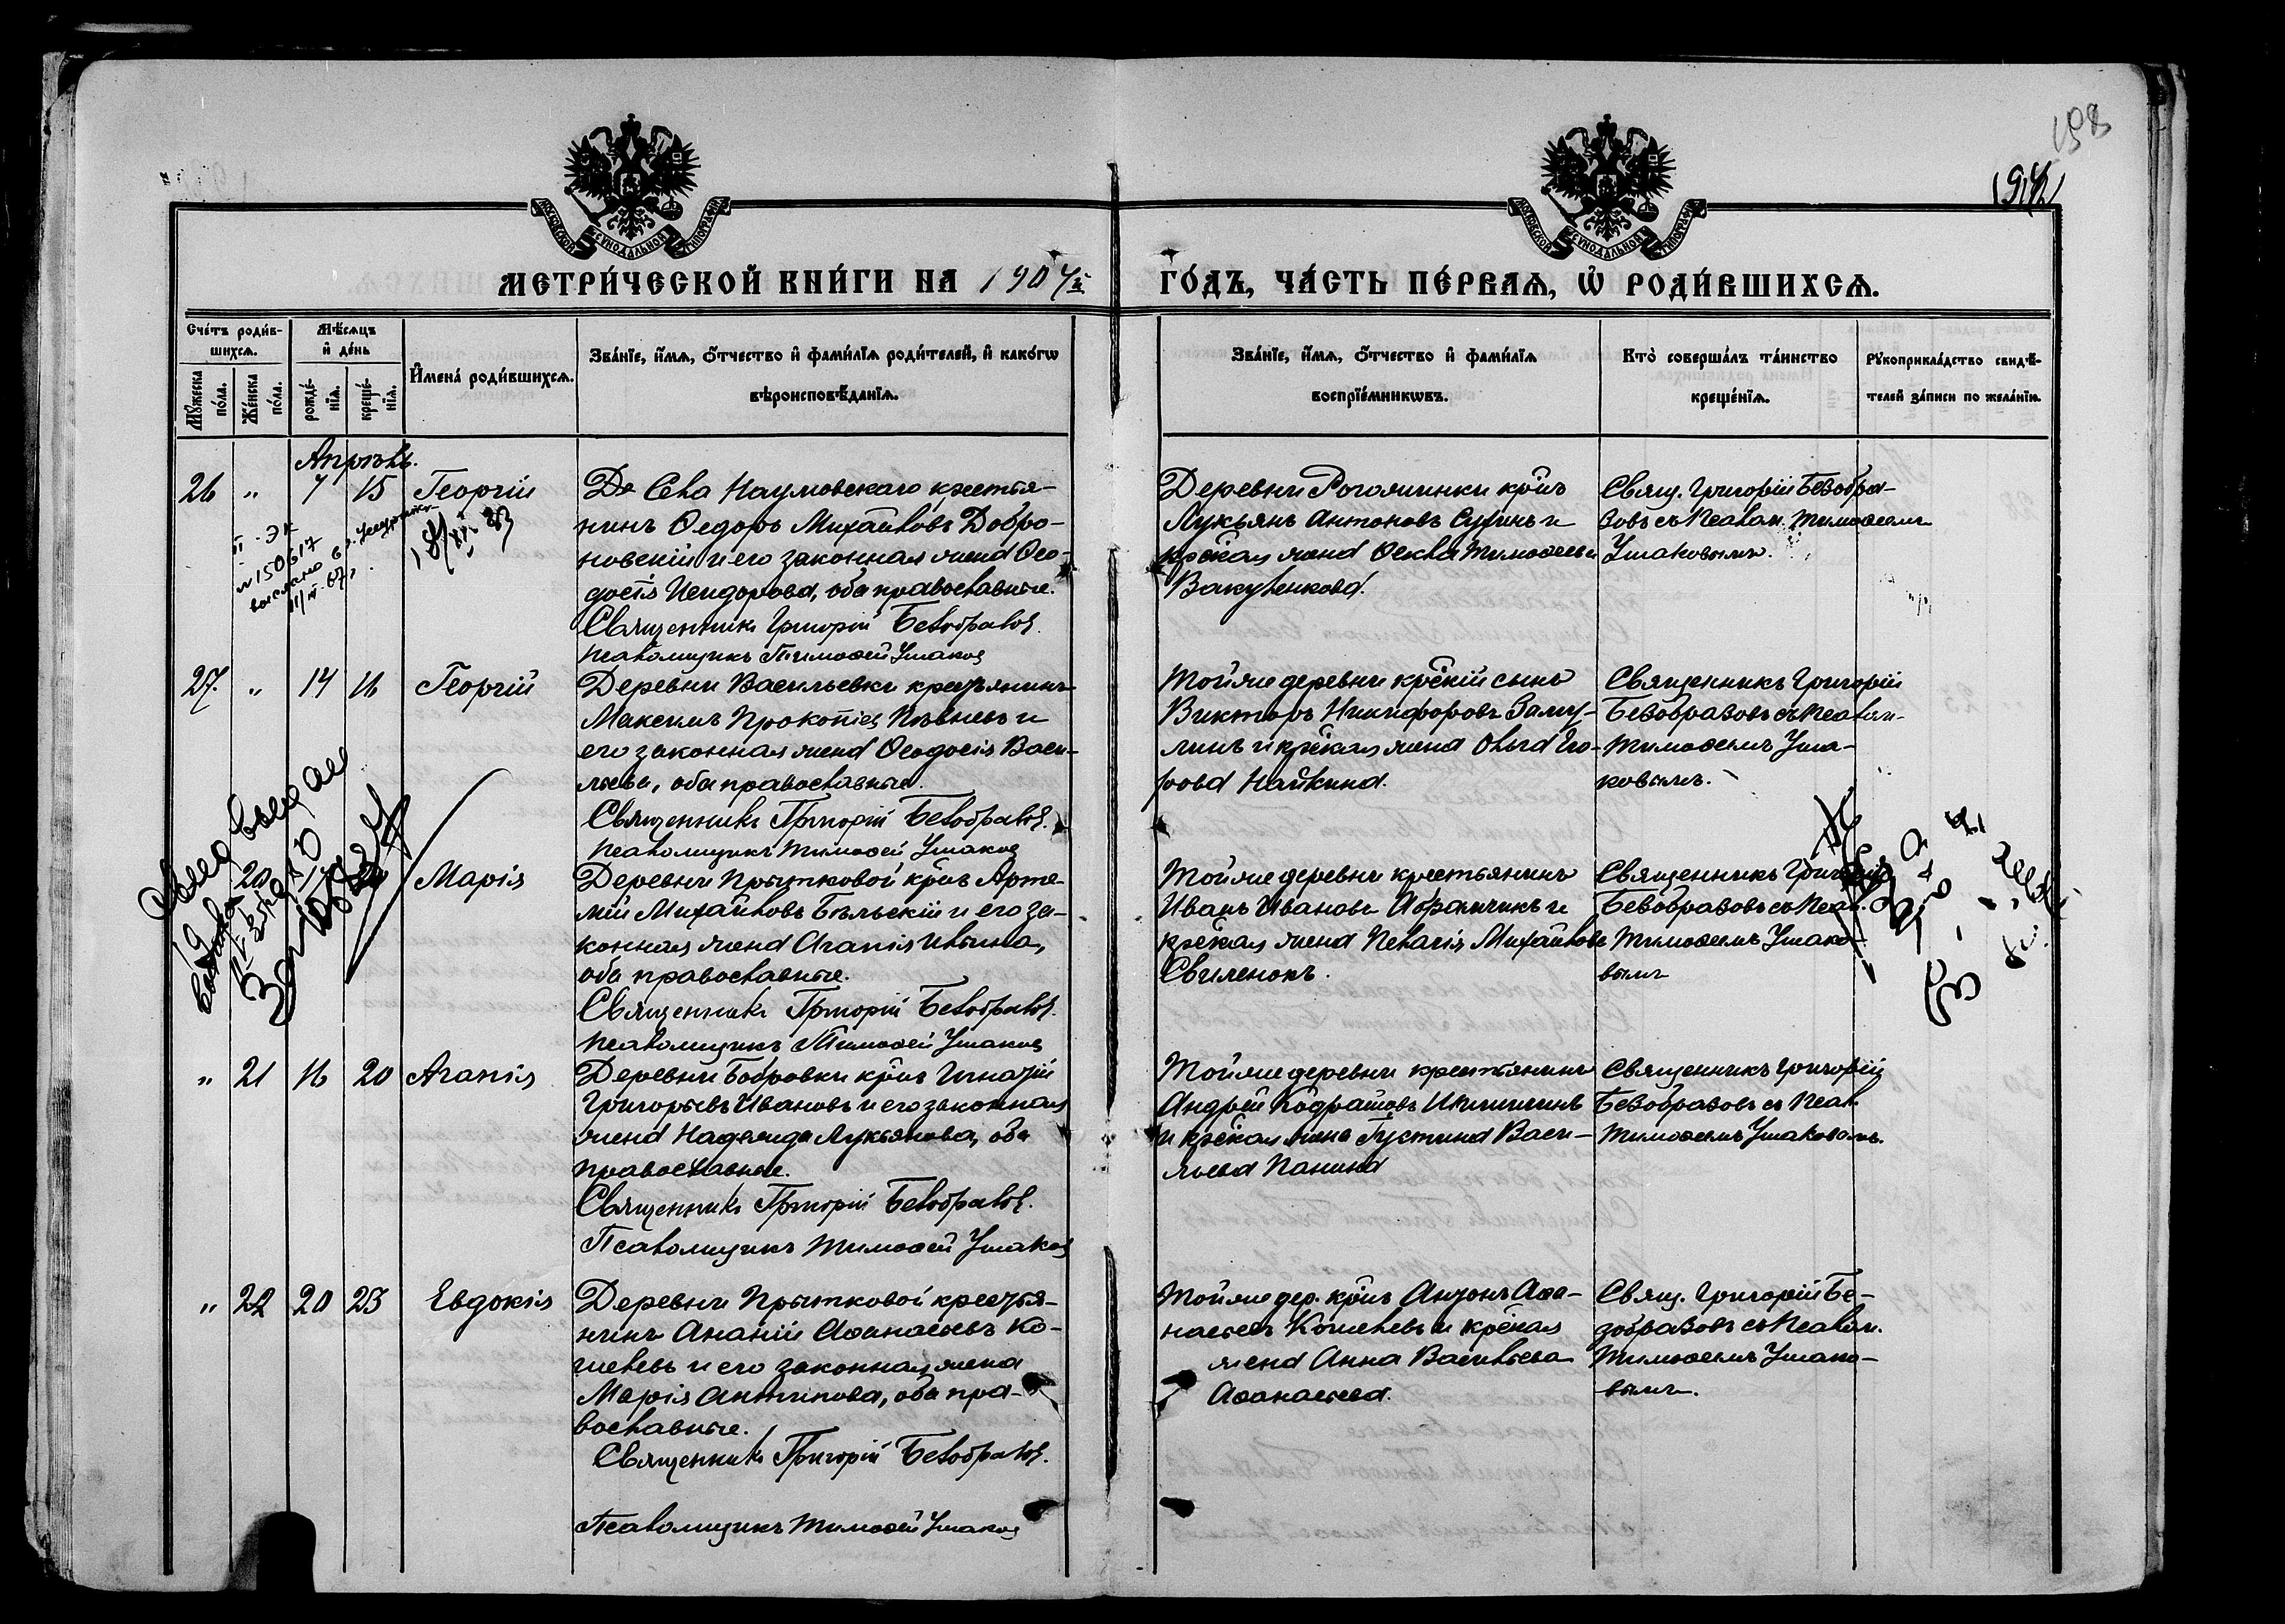 158
194
МОСКОВСКОЙ СѴНОДАЛЬНОЙ ТИПОГРАФІИ
МОСКОВСКОЙ СѴНОДАЛЬНОЙ ТИПОГРАФІИ
МЕТРИ́ЧЕСКОЙ КНИ́ГИ НА 1904й
ГО́ДЪ, ЧА́СТЬ ПЕ́РВАѦ, Ѡ҆ РОДИ́ВШИХСѦ.
Сче́тъ роди́в-
шихсѧ.
Мѣ́сѧцъ
и҆ де́нь
Мꙋ́жеска по́ла.
Же́нска по́ла.
рожде́-
нїѧ.
креще́-
нїѧ.
И҆мена̀ роди́вшихсѧ.
Зва́нїе, и҆́мѧ, ѻ҆́тчество и҆ фами́лїѧ роди́телей, и҆ како́гѡ
вѣроисповѣ́данїѧ.
Зва́нїе, и҆́мѧ, ѻ҆́тчество и҆ фами́лїѧ
воспрїе́мникѡвъ.
Кто̀ соверша́лъ та́инство
креще́нїѧ.
Рꙋкоприкла́дство свидѣ́-
телей за́писи по жела́нїю.
Апрѣль.
26 " 7 15 Георгій
Села Наумовскаго крестья-
нинъ Ѳедоръ Михайловъ Добро-
новскій и его законная жена Ѳео-
досія Исидорова, оба православные.
Священникъ Григорій Безобразовъ
Псаломщикъ Тимоѳей Ушаковъ
Деревни Рогожинки кр̃нъ
Лукьянъ Антоновъ Сухинъ и
кр̃ская жена Ѳекла Тимоѳеева
Вакуленкова.
Свящ. Григорій Безобра-
зовъ съ Псалом. Тимоѳеемъ
Ушаковымъ.
II - ЭК
№150617
выслано в г. Уссурийск
11/III-67г.
27. " 14 16 Георгій
Деревни Васильевки крестьянинъ
Максимъ Прокопіевъ Пѣвневъ и
его законная жена Ѳеодосія Васи-
льева, оба православные.
Священникъ Григорій Безобразовъ
Псаломщикъ Тимоѳей Ушаковъ
Той же деревни кр̃скій сынъ
Викторъ Никифоровъ Заму-
линъ и кр̃ская жена Ольга Его-
рова Найкина.
Священникъ Григорій
Безобразовъ съ Псалом.
Тимоѳеемъ Уша-
ковымъ.
20 Марія
Деревни Прытковой кр̃нъ Арте-
мій Михайловъ Бѣльскій и его за-
конная жена Агапія Ильина,
оба православные.
Священникъ Григорій Безобразовъ
Псаломщикъ Тимоѳей Ушаковъ
Той же деревни крестьянинъ
Иванъ Ивановъ Абрамчикъ и
кр̃ская жена Пелагія Михайлова
Свиленокъ.
Священникъ Григорій
Безобразовъ съ Псал.
Тимоѳеемъ Ушако-
вымъ
" 21 16 20 Агапія
Деревни Бобровки кр̃нъ Игнатій
Григорьевъ Ивановъ и его законная
жена Надежда Лукьянова, оба
православные.
Священникъ Григорій Безобразовъ
Псаломщикъ Тимоѳей Ушаковъ
Той же деревни крестьянинъ
Андрей Кодратовъ
и кр̃ская жена Густина Васи-
льева Панина
Священникъ Григорій
Безобразовъ съ Псал.
Тимоѳеемъ Ушаковымъ.
" 22 20 23 Евдокія
Деревни Прытковой крестья-
нинъ Ананій Аѳанасьевъ Ко-
шелевъ и его законная жена
Марія Антипова, оба пра-
вославные.
Священникъ Григорій Безобразовъ
Псаломщикъ Тимоѳей Ушаковъ
Той же дер. кр̃нъ Антонъ Аѳа-
насьевъ Кошелевъ и кр̃ская
жена Анна Васильева
Аѳанасьева.
Свящ. Григорій Бе-
зобразовъ съ Псалом.
Тимоѳеемъ Ушако-
вымъ.